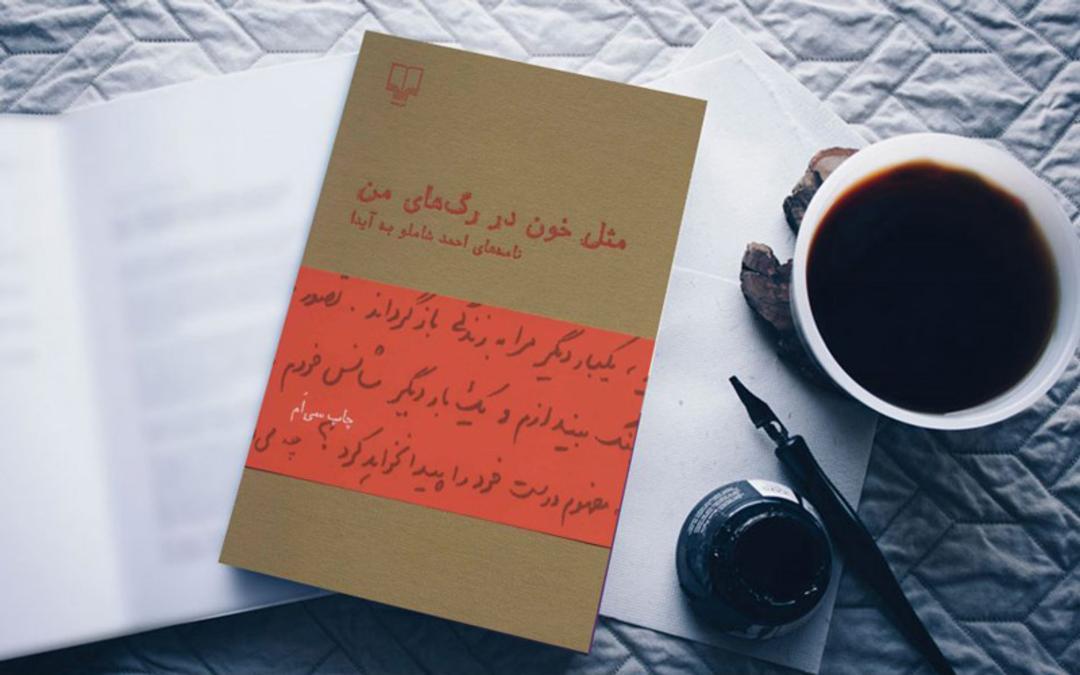 مثل خون در رگ‌های من
نامه‌های احمد شاملو به آیدا
یکبار دیگر مرا به زندگی بازگرداند . تصور
بیندازم و یک بار دیگر شانس خودم
چاپ سی‌اُم
مفهوم درست خود را پیدا نخواهد کرد ؟ چه می